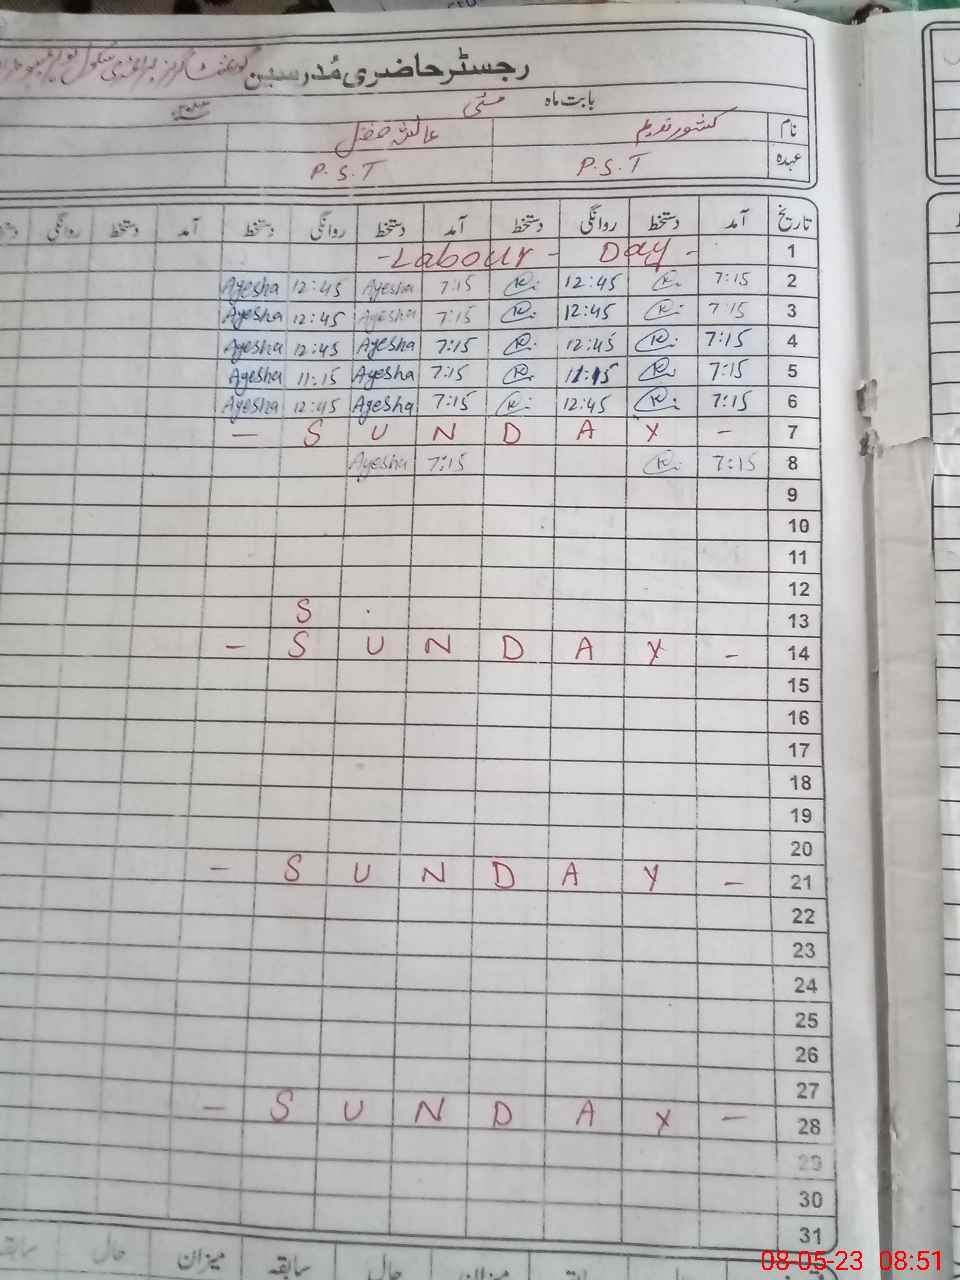 رجسٹر حاضری مُدرسین گورنمنٹ گرلز پرائمری سکول
بابت ماہ مئی
نام کشور ندیم عائشہ فضل
عہدہ P.S.T P.S.T
تاریخ آمد دستخط روانگی دستخط آمد دستخط روانگی دستخط آمد دستخط روانگی
1 - Labour - Day -
2 7:15 12:45 7:15 Ayesha 12:45 Ayesha
3 7:15 12:45 7:15 Ayesha 12:45 Ayesha
4 7:15 12:45 7:15 Ayesha 12:45 Ayesha
5 7:15 11:15 7:15 Ayesha 11:15 Ayesha
6 7:15 12:45 7:15 Ayesha 12:45 Ayesha
7 - S U N D A Y -
8 7:15 7:15 Ayesha
9
10
11
12
13 S
14 - S U N D A Y -
15
16
17
18
19
20
21 - S U N D A Y -
22
23
24
25
26
27
28 - S U N D A Y -
29
30
31
سابقہ حال میزان سابقہ حال میزان
08-05-23 08:51